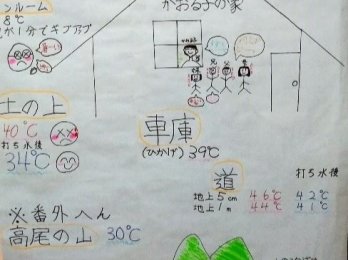 ンルーム
8℃
か1分でギブアップ
かおる子の家
土の上
40℃
打ち水後
34℃
車庫
(ひかげ) 39℃
道
打ち水後
地上5cm 46℃ 42℃
地上1m 44℃ 41℃
※番外へん
高尾の山 30℃